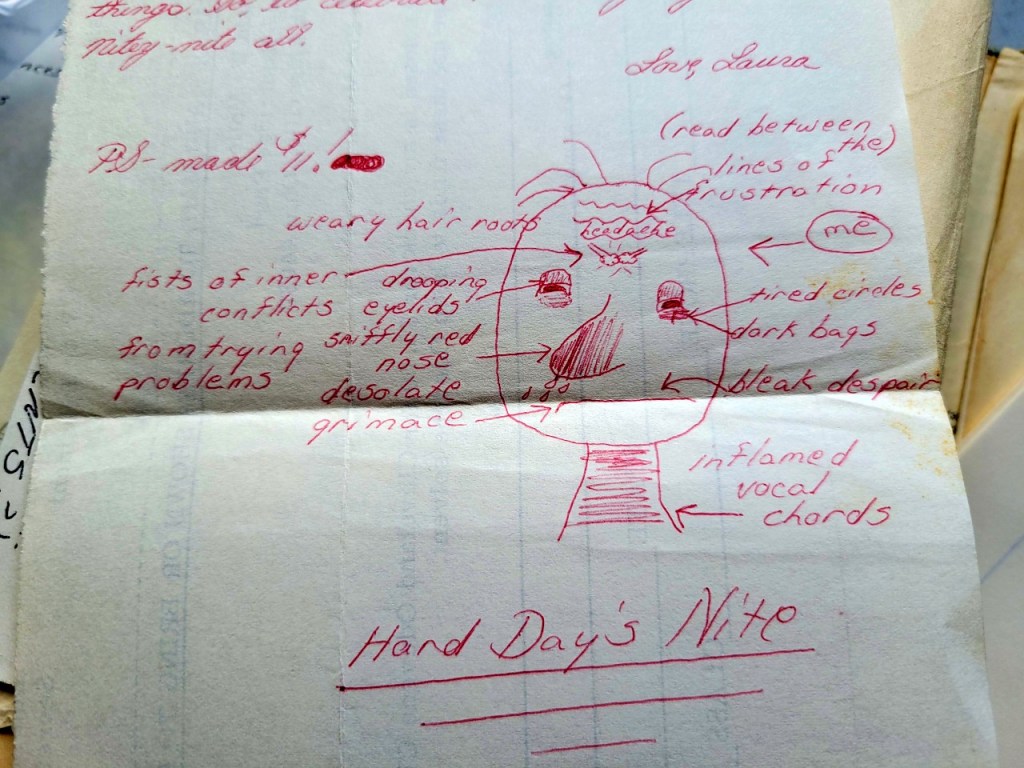 things. So, to
Nitey-nite all.
Love, Laura
PS- made $11.!
(read between
the)
lines of
frustration
weary hair roots
headache
me
fists of inner
conflicts
from trying
problems
drooping
eyelids
sniffly red
nose
desolate
grimace
tired circles
dark bags
bleak despair
inflamed
vocal
chords
Hard Day's Nite